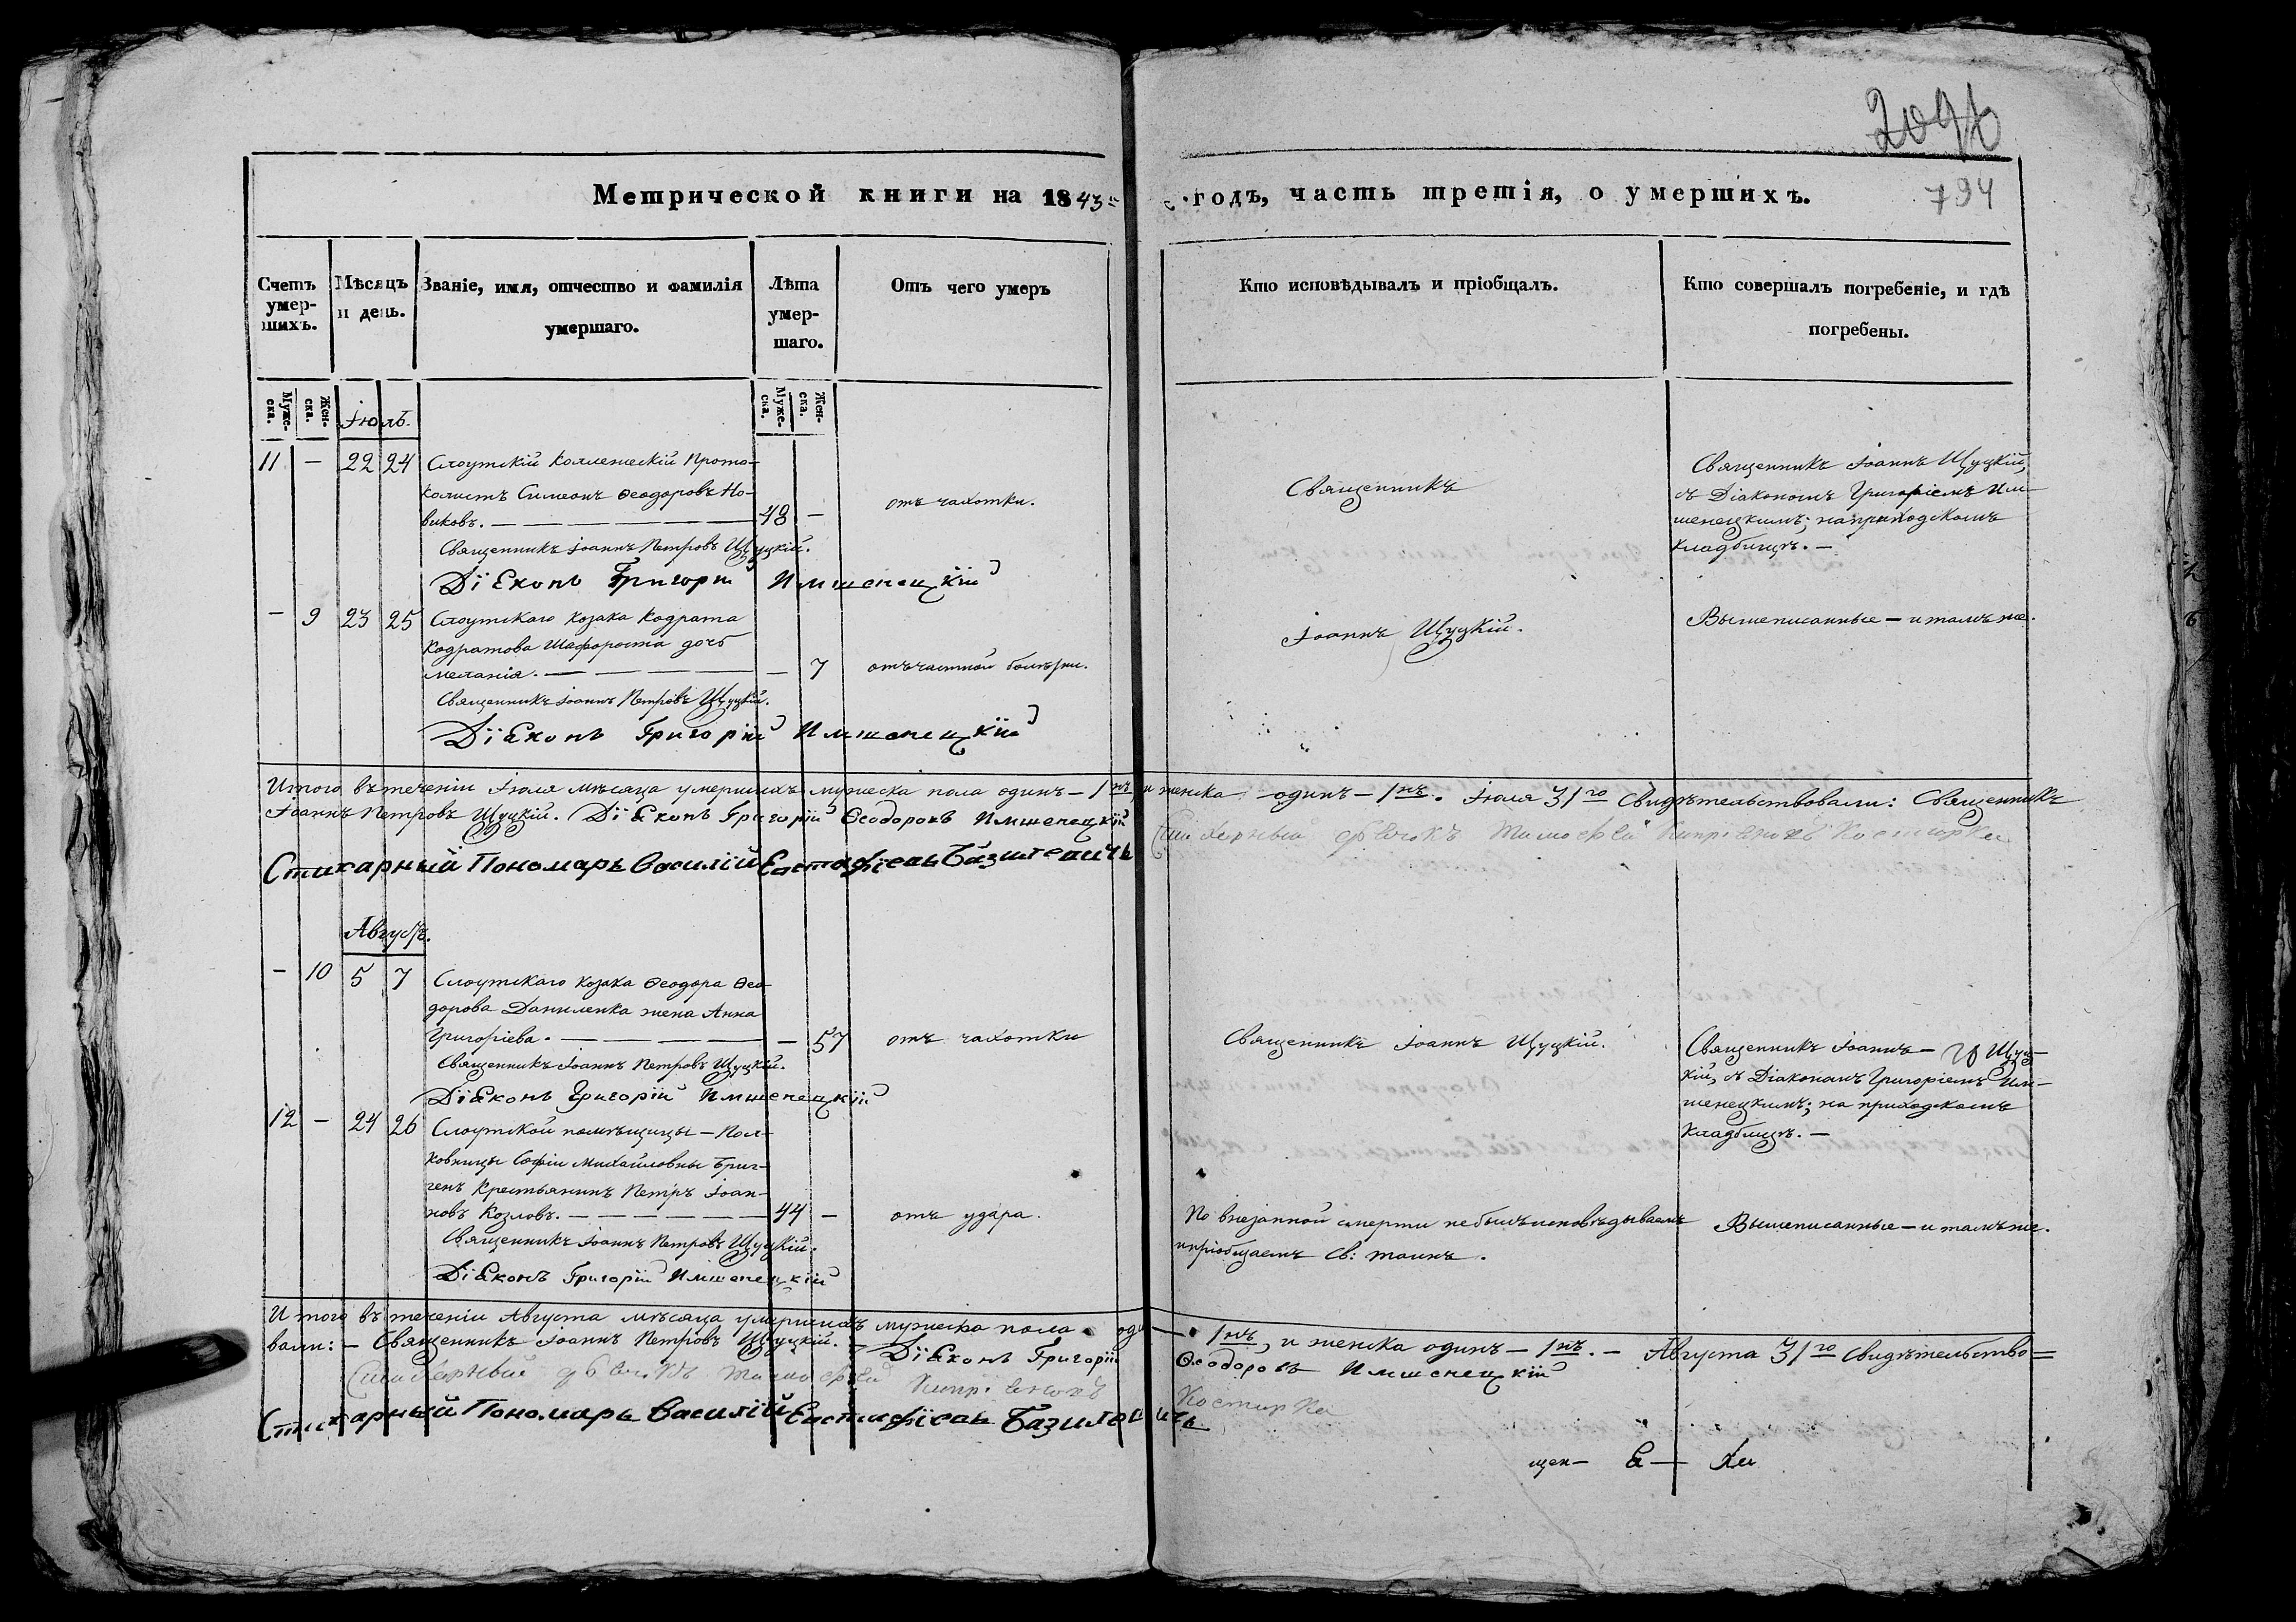 209
794
Метрической книги на 1843= годъ, часть третія, о умершихъ.
Счетъ умер-шихъ.
Мѣсяцъ и день.
Званіе, имя, отчество и фамилія умершаго.
Лѣта умер-шаго.
Отъ чего умеръ
Кто исповѣдывалъ и пріобщалъ.
Кто совершалъ погребеніе, и гдѣ погребены.
Муже-ска.
Жен-ска.
Муже-ска.
Жен-ска.
Іюль.
11 — 22 24 Слоутскій Коллежскій Прото-
колистъ Симеонъ Ѳеодоровъ Но-
виковъ. — 48 — отъ чахотки.
Священникъ Іоаннъ Петровъ Щуцкій.
Діяконъ Григорій Имшенецкій
Священникъ
Священникъ Іоаннъ Щуцкій,
съ Діакономъ Григоріемъ Им-
шенецкимъ; на приходскомъ
кладбищѣ. —
— 9 23 25 Слоутскаго козака Кодрата
Кодратова Шафороста дочь
Меланія. — — 7 отъ частной болѣзни.
Священникъ Іоаннъ Петровъ Щуцкій.
Діяконъ Григорій Имшенецкій
Іоаннъ Щуцкій.
Вышеписанные — и тамъ же.
Итого въ теченіи Іюля мѣсяца умершихъ мужеска пола одинъ — 1нъ, и женска одинъ — 1нъ. Іюля 31го Свидѣтельствовали: Священникъ
Іоаннъ Петровъ Щуцкій. Діяконъ Григорій Ѳеодоровъ Имшенецкій
Стихарный дьячокъ Тимофей Кипріяновъ Костирка
Стихарный Пономарь Василій Евстафіевъ Базилевичъ
Августъ.
— 10 5 7 Слоутскаго козака Ѳеодора Ѳео-
дорова Даниленка жена Анна
Григоріева. — — 57 отъ чахотки
Священникъ Іоаннъ Петровъ Щуцкій.
Діяконъ Григорій Имшенецкій
Священникъ Іоаннъ Щуцкій.
Священникъ Іоаннъ — Щуц-
кій, съ Діакономъ Григоріемъ Им-
шенецкимъ; на приходскомъ
кладбищѣ. —
12 — 24 26 Слоутской помѣщицы — Пол-
ковницы Софіи Михайловны Бриг-
генъ крестьянинъ Петръ Іоан-
новъ Козловъ. — 44 — отъ удара.
Священникъ Іоаннъ Петровъ Щуцкій.
Діяконъ Григорій Имшенецкій
По внезапной смерти небылъ исповѣдываемъ
и пріобщаемъ Св: таинъ.
Вышеписанные — и тамъ же.
Итого въ теченіи Августа мѣсяца умершихъ мужеска пола один — 1нъ, и женска одинъ — 1нъ. — Августа 31го Свидѣтельство=
вали: — Священникъ Іоаннъ Петровъ Щуцкій. — Діяконъ Григорій Ѳеодоровъ Имшенецкій
Стихарный дьячокъ Тимофей Кипріяновъ Костирка
Стихарный Пономарь Василій Евстафіевъ Базилевичъ
щен —